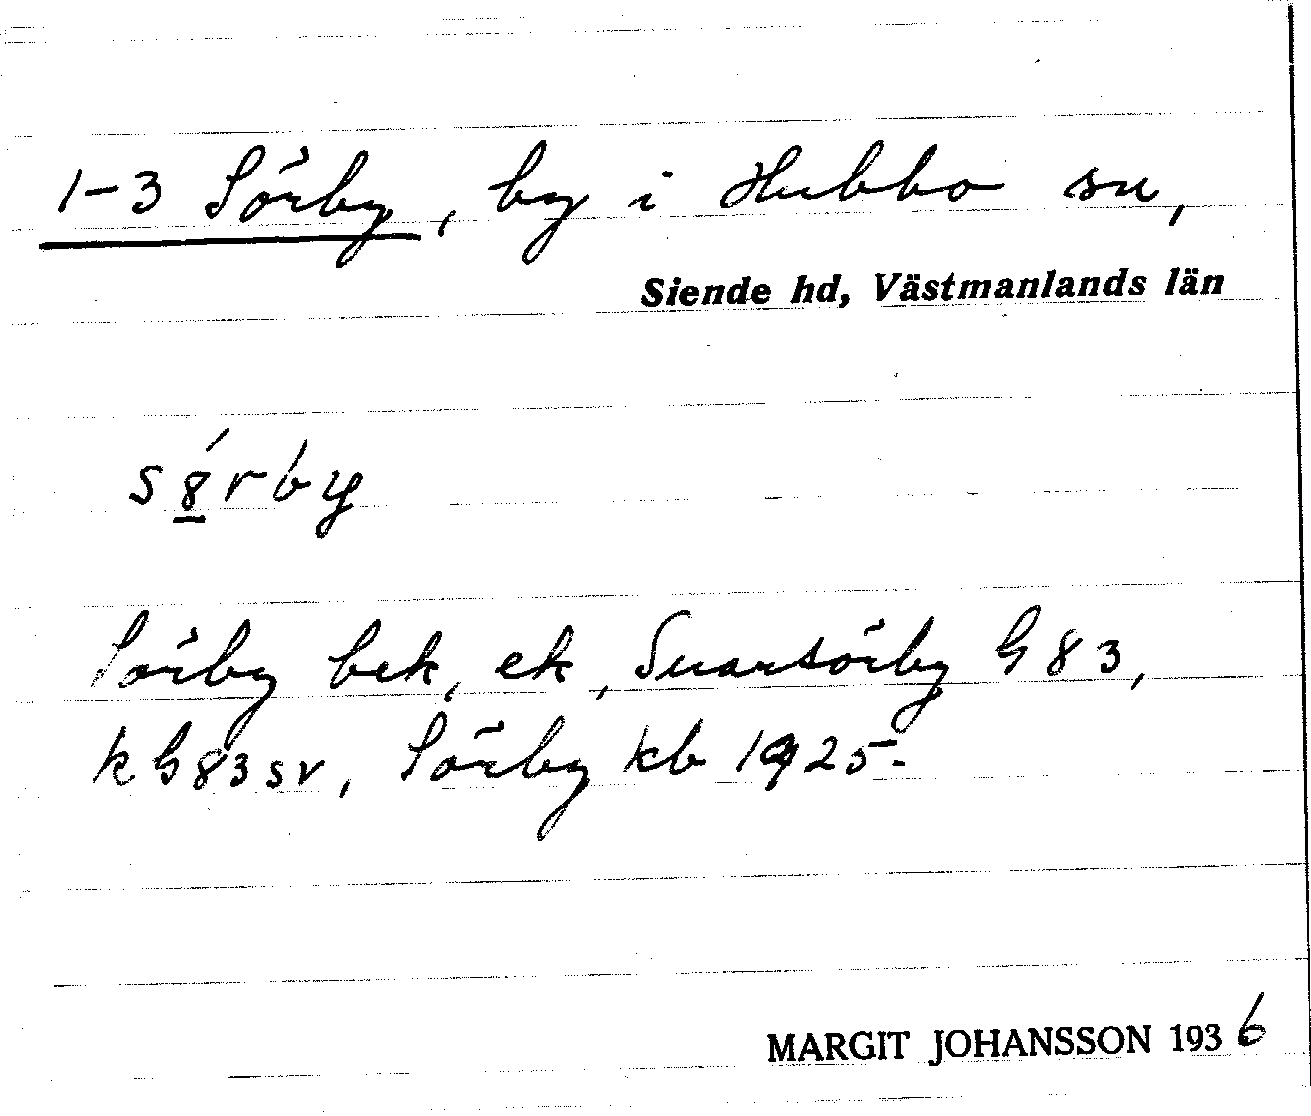 1-3 Sörby, by i Hubbo sn,
Siende hd, Västmanlands län
s8́rbý
Sörby bek, ek, Snartsörby G 83,
k G 83 sv, Sörby kb 1925-
MARGIT JOHANSSON 1936